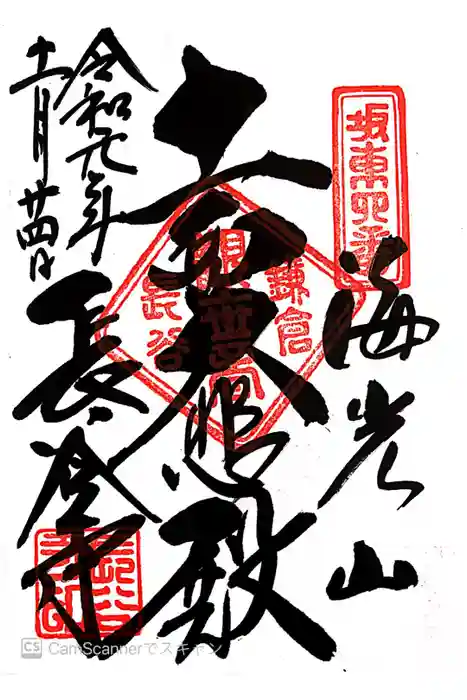 坂東四番
海光山
十一面大悲殿
鎌倉
長谷
長谷寺
令和元年
十一月廿四日
CS CamScannerでスキャン